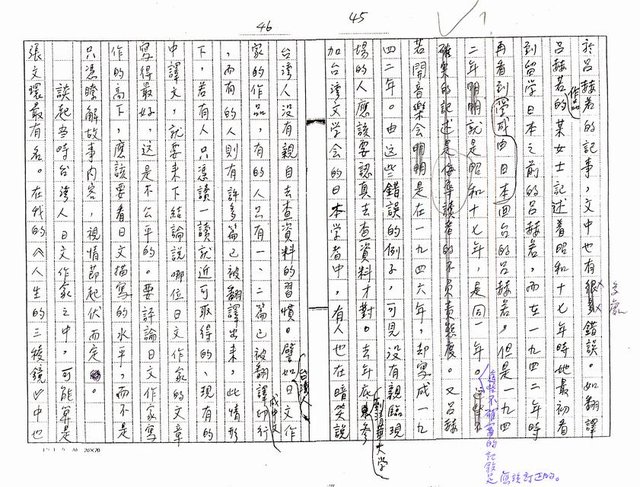 46
45
於呂赫若的記事，文中也有很多錯誤。如翻譯
呂赫若的作品的某女士記述着昭和十七年時她最初看
到留學日本之前的呂赫若，而在一九四二年時
再看到學成由日本回台的呂赫若，但是一九四
二年明明就是昭和十七年，是同一年。
的記述是侮辱讀者的不負責態度。又呂赫
若開音樂會明明是在一九四六年，却寫成一九
四二年。由這些錯誤的例子，可見沒有親臨現
場的人應該要認真去查資料才對。去年底來參
加清華大學台灣文學会的日本学者中，有人也在暗笑說
台灣人沒有親自去查資料的習慣。譬如台灣人日文作
家的作品，有的人只有一、二篇已被翻譯成中文印行
，而有的人則有許多篇已被翻譯出來，此情形
下，若有人只憑讀一讀就近可取得的、現有的
中譯文，就要來下結論說哪位日文作家的文章
寫得最好，這是不公平的。要評論日文作家寫
作的高下，應該要看日文描寫的水平，而不是
只憑瞭解故事內容，視情節起伏而定。
談起当時台灣人日文作家之中，可能算是
張文環最有名。在我的《人生的三稜鏡》中也